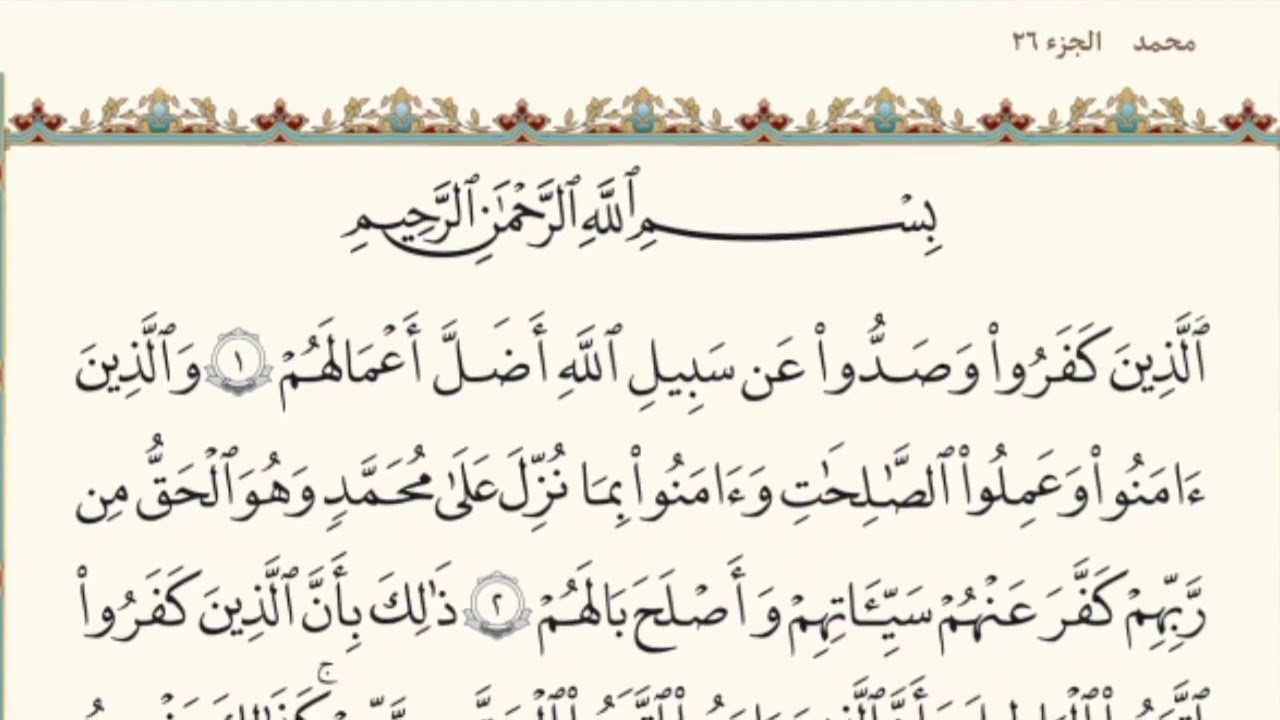 محمد الجزء ٢٦
بِسْمِ ٱللَّهِ ٱلرَّحْمَٰنِ ٱلرَّحِيمِ
ٱلَّذِينَ كَفَرُوا۟ وَصَدُّوا۟ عَن سَبِيلِ ٱللَّهِ أَضَلَّ أَعْمَالَهُمْ ١ وَٱلَّذِينَ
ءَامَنُوا۟ وَعَمِلُوا۟ ٱلصَّٰلِحَٰتِ وَءَامَنُوا۟ بِمَا نُزِّلَ عَلَىٰ مُحَمَّدٍ وَهُوَ ٱلْحَقُّ مِن
رَّبِّهِمْ كَفَّرَ عَنْهُمْ سَيِّـَٔاتِهِمْ وَأَصْلَحَ بَالَهُمْ ٢ ذَٰلِكَ بِأَنَّ ٱلَّذِينَ كَفَرُوا۟